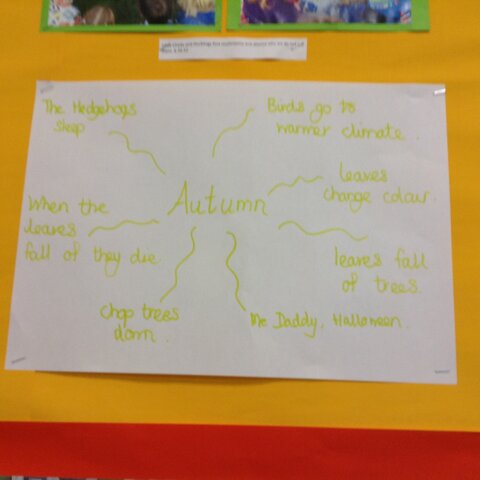 The Hedgehogs
sleep
Birds go to
warmer climate.
Autumn
leaves
change colour.
When the
leaves
fall of they die.
leaves fall
of trees.
chop trees
down.
Me Daddy, Halloween.